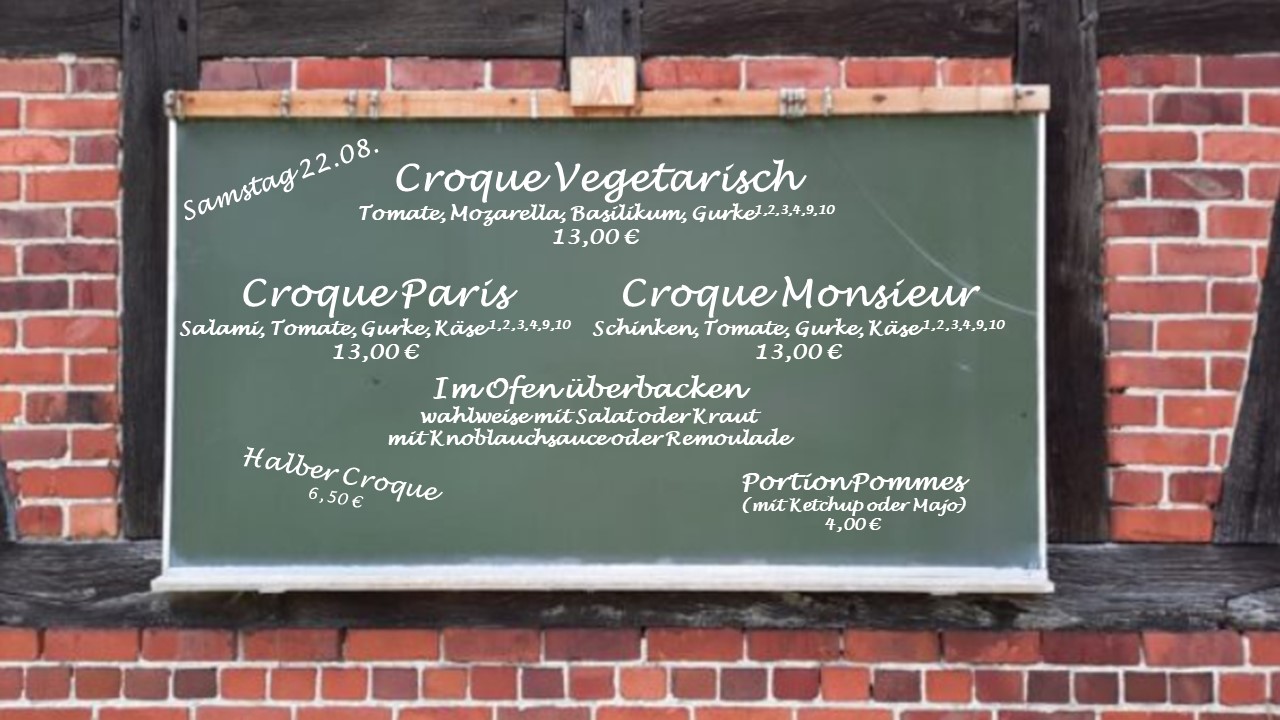 Samstag 22.08.
Croque Vegetarisch
Tomate, Mozarella, Basilikum, Gurke1,2,3,4,9,10
13,00 €
Croque Paris
Salami, Tomate, Gurke, Käse1,2,3,4,9,10
13,00 €
Croque Monsieur
Schinken, Tomate, Gurke, Käse1,2,3,4,9,10
13,00 €
Im Ofen überbacken
wahlweise mit Salat oder Kraut
mit Knoblauchsauce oder Remoulade
Halber Croque
6,50 €
Portion Pommes
(mit Ketchup oder Majo)
4,00 €